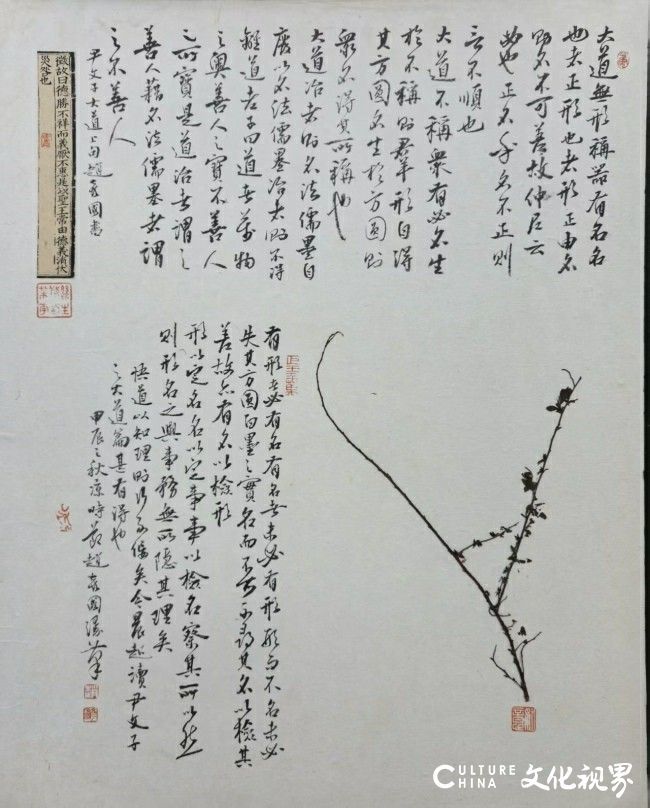 大道無形稱器有名名
也者正形也者形正由名
則名不可差故仲尼云
必也正名乎名不正則
言不順也
大道不稱衆有必名生
於不稱則羣形自得
其方圓名生於方圓則
衆名得其所稱也
大道治者則名法儒墨自
廢以名法儒墨治者則不得
離道老子曰道者萬物
之奧善人之寶不善人
之所寶是道治者謂之
善人藉名法儒墨者謂
之不善人
尹文子大道上句趙國書
徵故曰德勝不祥而義厭不惠是以聖王常由德義消伏
災咎也
有形者必有名有名者未必有形形而不名未必
失其方圓白墨之實名而不可不尋其名以檢其
差故亦有名以檢形
形以定名名以定事事以檢名察其所以然
則形名之與事物無所隱其理矣
悟道以知理則矣今晨起讀尹文子
之大道篇甚有得也
甲辰之秋涼時節趙國濡筆
CULTURE CHINA 文化视界